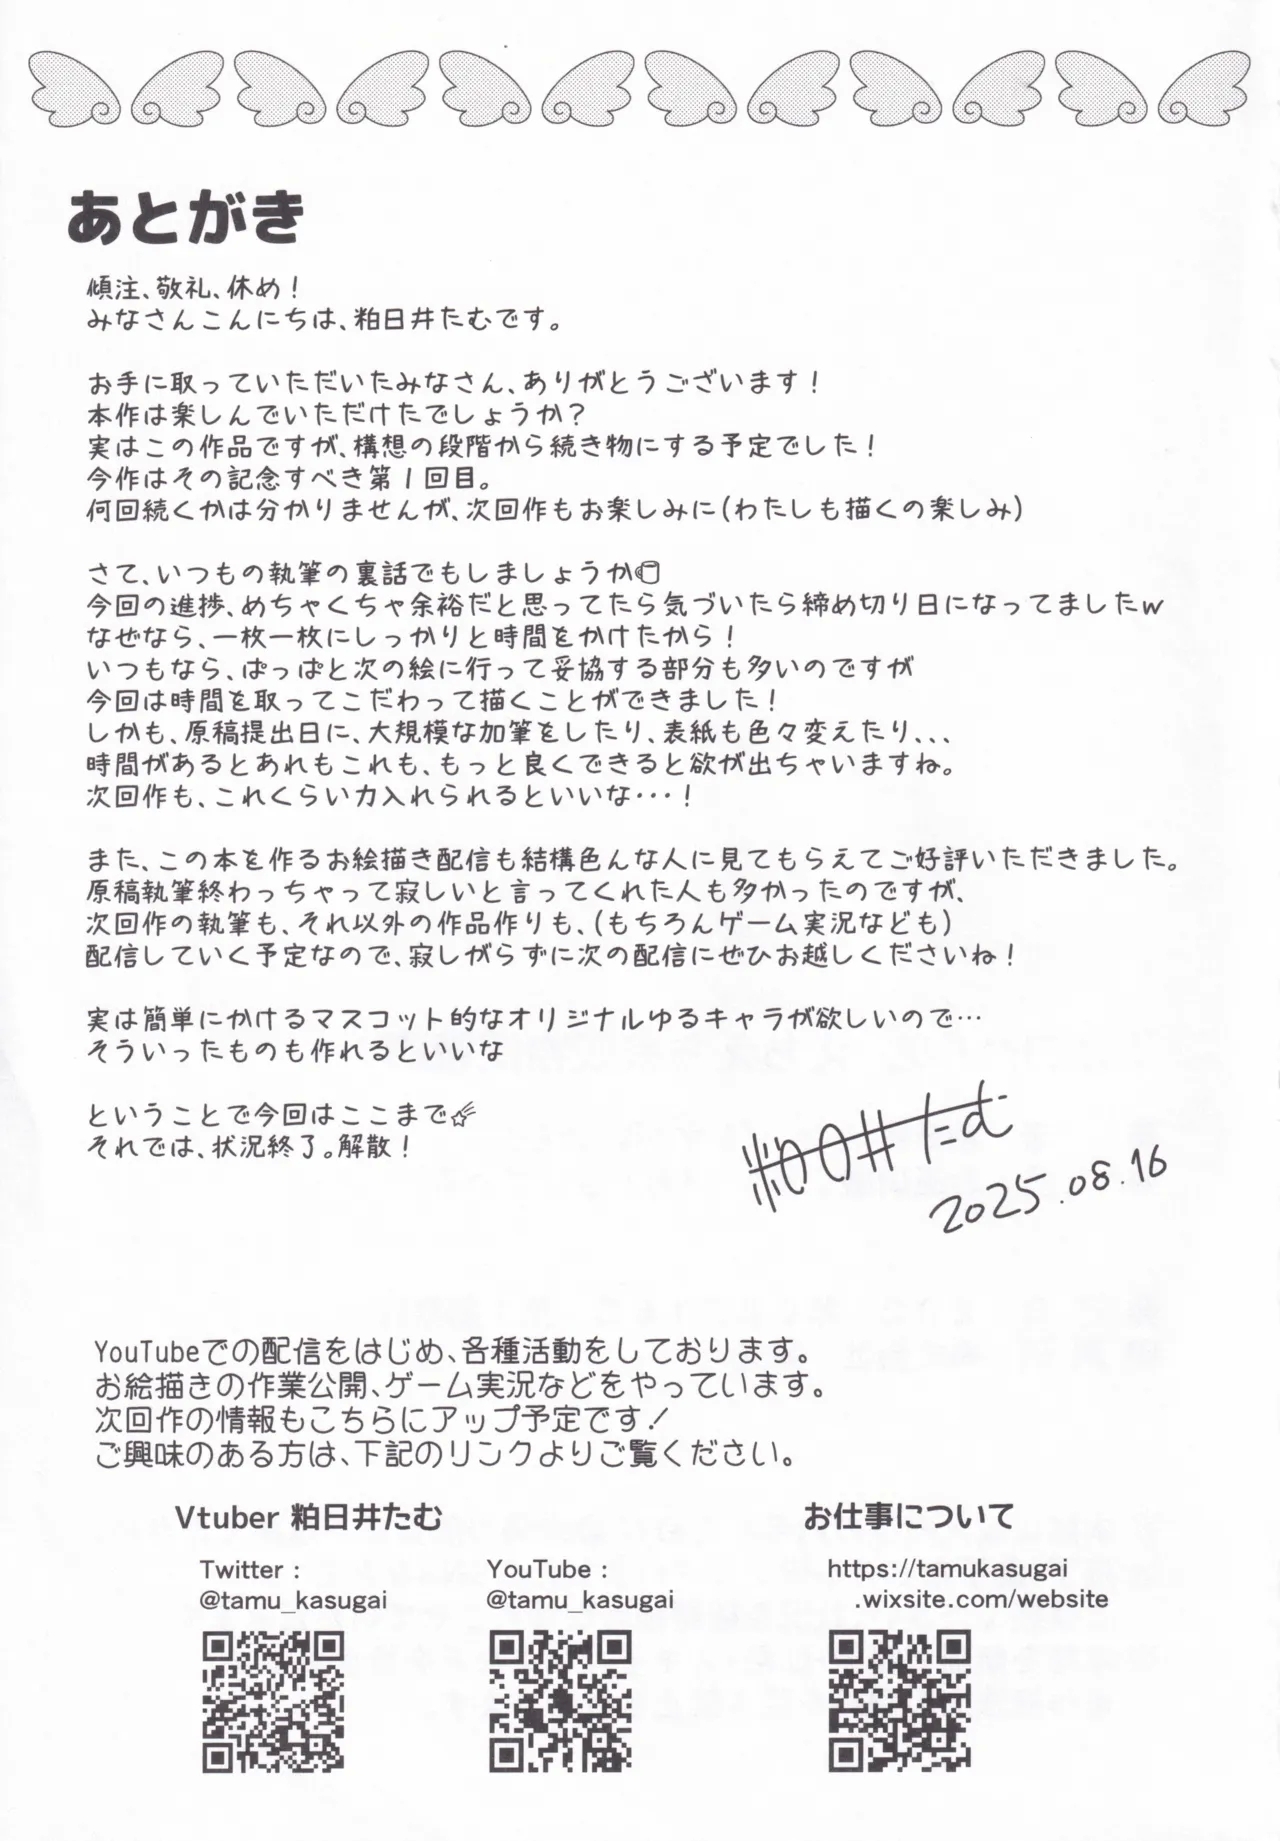 あとがき
傾注、敬礼、休め!
みなさんこんにちは、粕日井たむです。
お手に取っていただいたみなさん、ありがとうございます!
本作は楽しんでいただけたでしょうか?
実はこの作品ですが、構想の段階から続き物にする予定でした!
今作はその記念すべき第1回目。
何回続くかは分かりませんが、次回作もお楽しみに(わたしも描くの楽しみ)
さて、いつもの執筆の裏話でもしましょうか
今回の進捗、めちゃくちゃ余裕だと思ってたら気づいたら締め切り日になってましたw
なぜなら、一枚一枚にしっかりと時間をかけたから!
いつもなら、ぱっぱと次の絵に行って妥協する部分も多いのですが
今回は時間を取ってこだわって描くことができました!
しかも、原稿提出日に、大規模な加筆をしたり、表紙も色々変えたり、、、
時間があるとあれもこれも、もっと良くできると欲が出ちゃいますね。
次回作も、これくらい力入れられるといいな・・・!
また、この本を作るお絵描き配信も結構色んな人に見てもらえてご好評いただきました。
原稿執筆終わっちゃって寂しいと言ってくれた人も多かったのですが、
次回作の執筆も、それ以外の作品作りも、(もちろんゲーム実況なども)
配信していく予定なので、寂しがらずに次の配信にぜひお越しくださいね!
実は簡単にかけるマスコット的なオリジナルゆるキャラが欲しいので…
そういったものも作れるといいな
ということで今回はここまで
それでは、状況終了。解散!
粕日井たむ
2025.08.16
YouTubeでの配信をはじめ、各種活動をしております。
お絵描きの作業公開、ゲーム実況などをやっています。
次回作の情報もこちらにアップ予定です!
ご興味のある方は、下記のリンクよりご覧ください。
Vtuber 粕日井たむ
Twitter :
@tamu_kasugai
YouTube :
@tamu_kasugai
お仕事について
https://tamukasugai
.wixsite.com/website